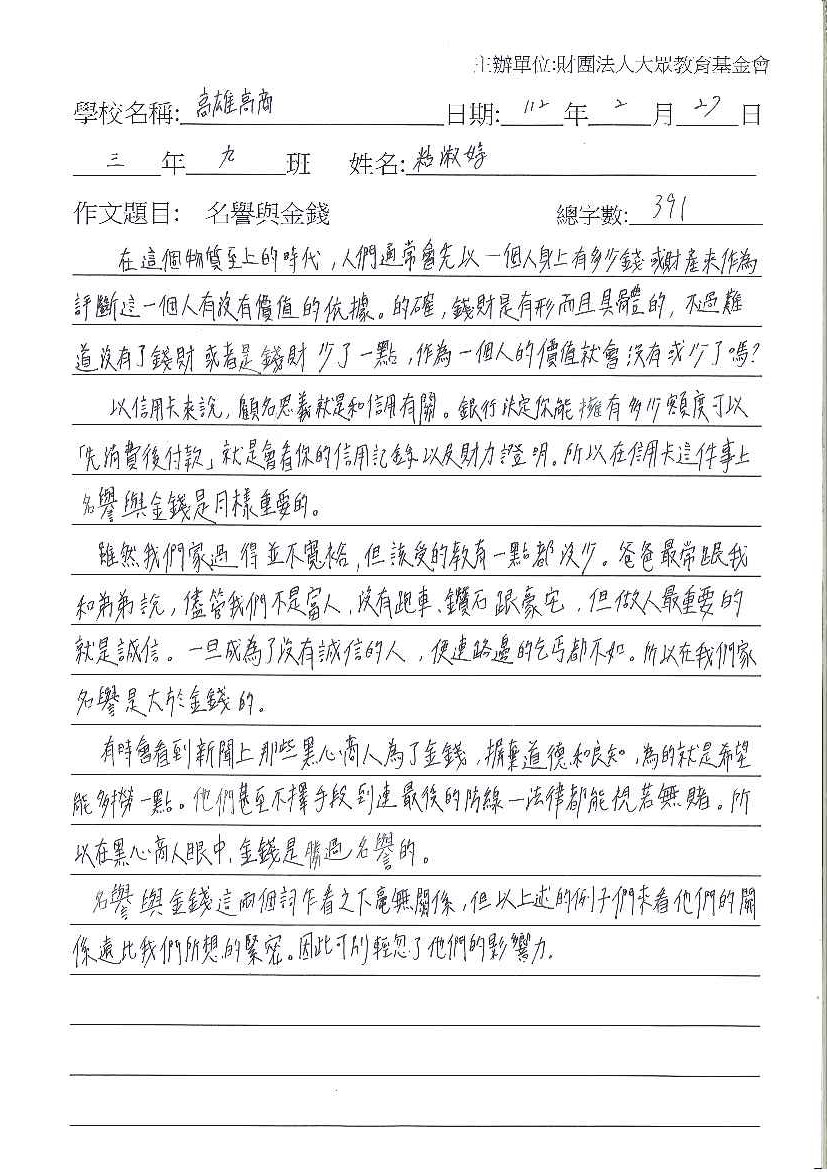 主辦單位:財團法人大眾教育基金會
學校名稱: 高雄高商 日期: 112 年 2 月 27 日
三 年 九 班 姓名: 粘淑婷
作文題目: 名譽與金錢 總字數: 391
在這個物質至上的時代,人們通常會先以一個人身上有多少錢或財產來作為
評斷這一個人有沒有價值的依據。的確,錢財是有形而且具體的,不過難
道沒有了錢財或者是錢財少了一點,作為一個人的價值就會沒有或少了嗎?
以信用卡來說,顧名思義就是和信用有關。銀行決定你能擁有多少額度可以
「先消費後付款」就是會看你的信用記錄以及財力證明。所以在信用卡這件事上
名譽與金錢是同樣重要的。
雖然我們家過得並不寬裕,但該受的教育一點都沒少。爸爸最常跟我
和弟弟說,儘管我們不是富人,沒有跑車、鑽石跟豪宅,但做人最重要的
就是誠信。一旦成為了沒有誠信的人,便連路邊的乞丐都不如。所以在我們家
名譽是大於金錢的。
有時會看到新聞上那些黑心商人為了金錢,摒棄道德和良知,為的就是希望
能多撈一點。他們甚至不擇手段到連最後的防線—法律都能視若無賭。所
以在黑心商人眼中,金錢是勝過名譽的。
名譽與金錢這兩個詞乍看之下毫無關係,但以上述的例子們來看他們的關
係遠比我們所想的緊密。因此可別輕忽了他們的影響力.